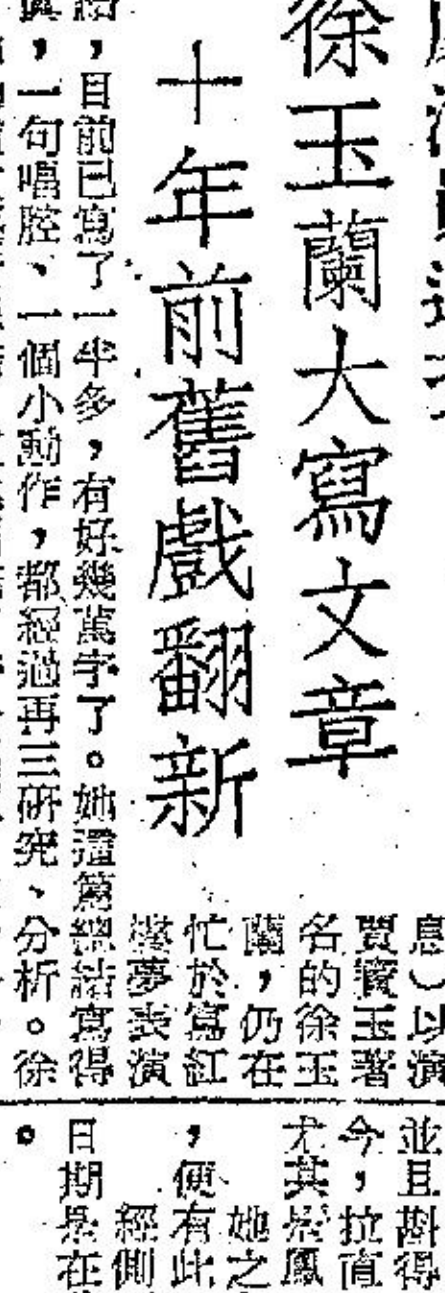 徐玉蘭大寫文章
十年前舊戲翻新
息)以演
賈寶玉著
名的徐玉
蘭,仍在
忙於寫紅
樓夢表演
,目前已寫了一半多,有好幾萬字了。她這篇總結寫得
,一句唱腔、一個小動作,都經過再三研究、分析。徐
並且斟得
今,拉直
尤其是鳳
她之
,便有此
經側
日期是在
。